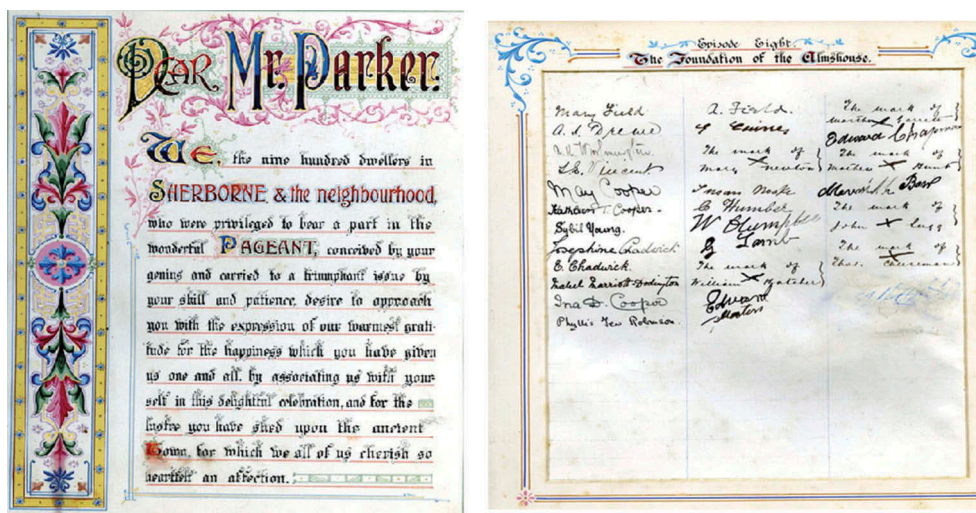 Dear Mr. Parker.
We, the nine hundred dwellers in
SHERBORNE & the neighbourhood,
who were privileged to bear a part in the
wonderful PAGEANT, conceived by your
genius and carried to a triumphant issue by
your skill and patience, desire to approach
you with the expression of our warmest grati-
tude for the happiness which you have given
us one and all, by associating us with your-
self in this delightful celebration, and for the
lustre you have shed upon the ancient
Town, for which we all of us cherish so
heartfelt an affection.
Episode Eight.
The Foundation of the Almshouse.
Mary Field
A. S. Drewe
S.E. Vincent
May Cooper
Kathleen T. Cooper.
Sybil Young.
Josephine Chadwick
E. Chadwick.
Mabel Marriott-Dodington
Ina D. Cooper
Phyllis Tew Robinson.
A. Field.
The mark of
Mary X Newton
Susan Moake
C Humber
W Plumptre
The mark of
William X Hatcher
Edward
Masters
The mark of
Martha X
Edward Chapman
The mark of
X Hunt
The mark of
John X Lugg
The mark of
Thos. X